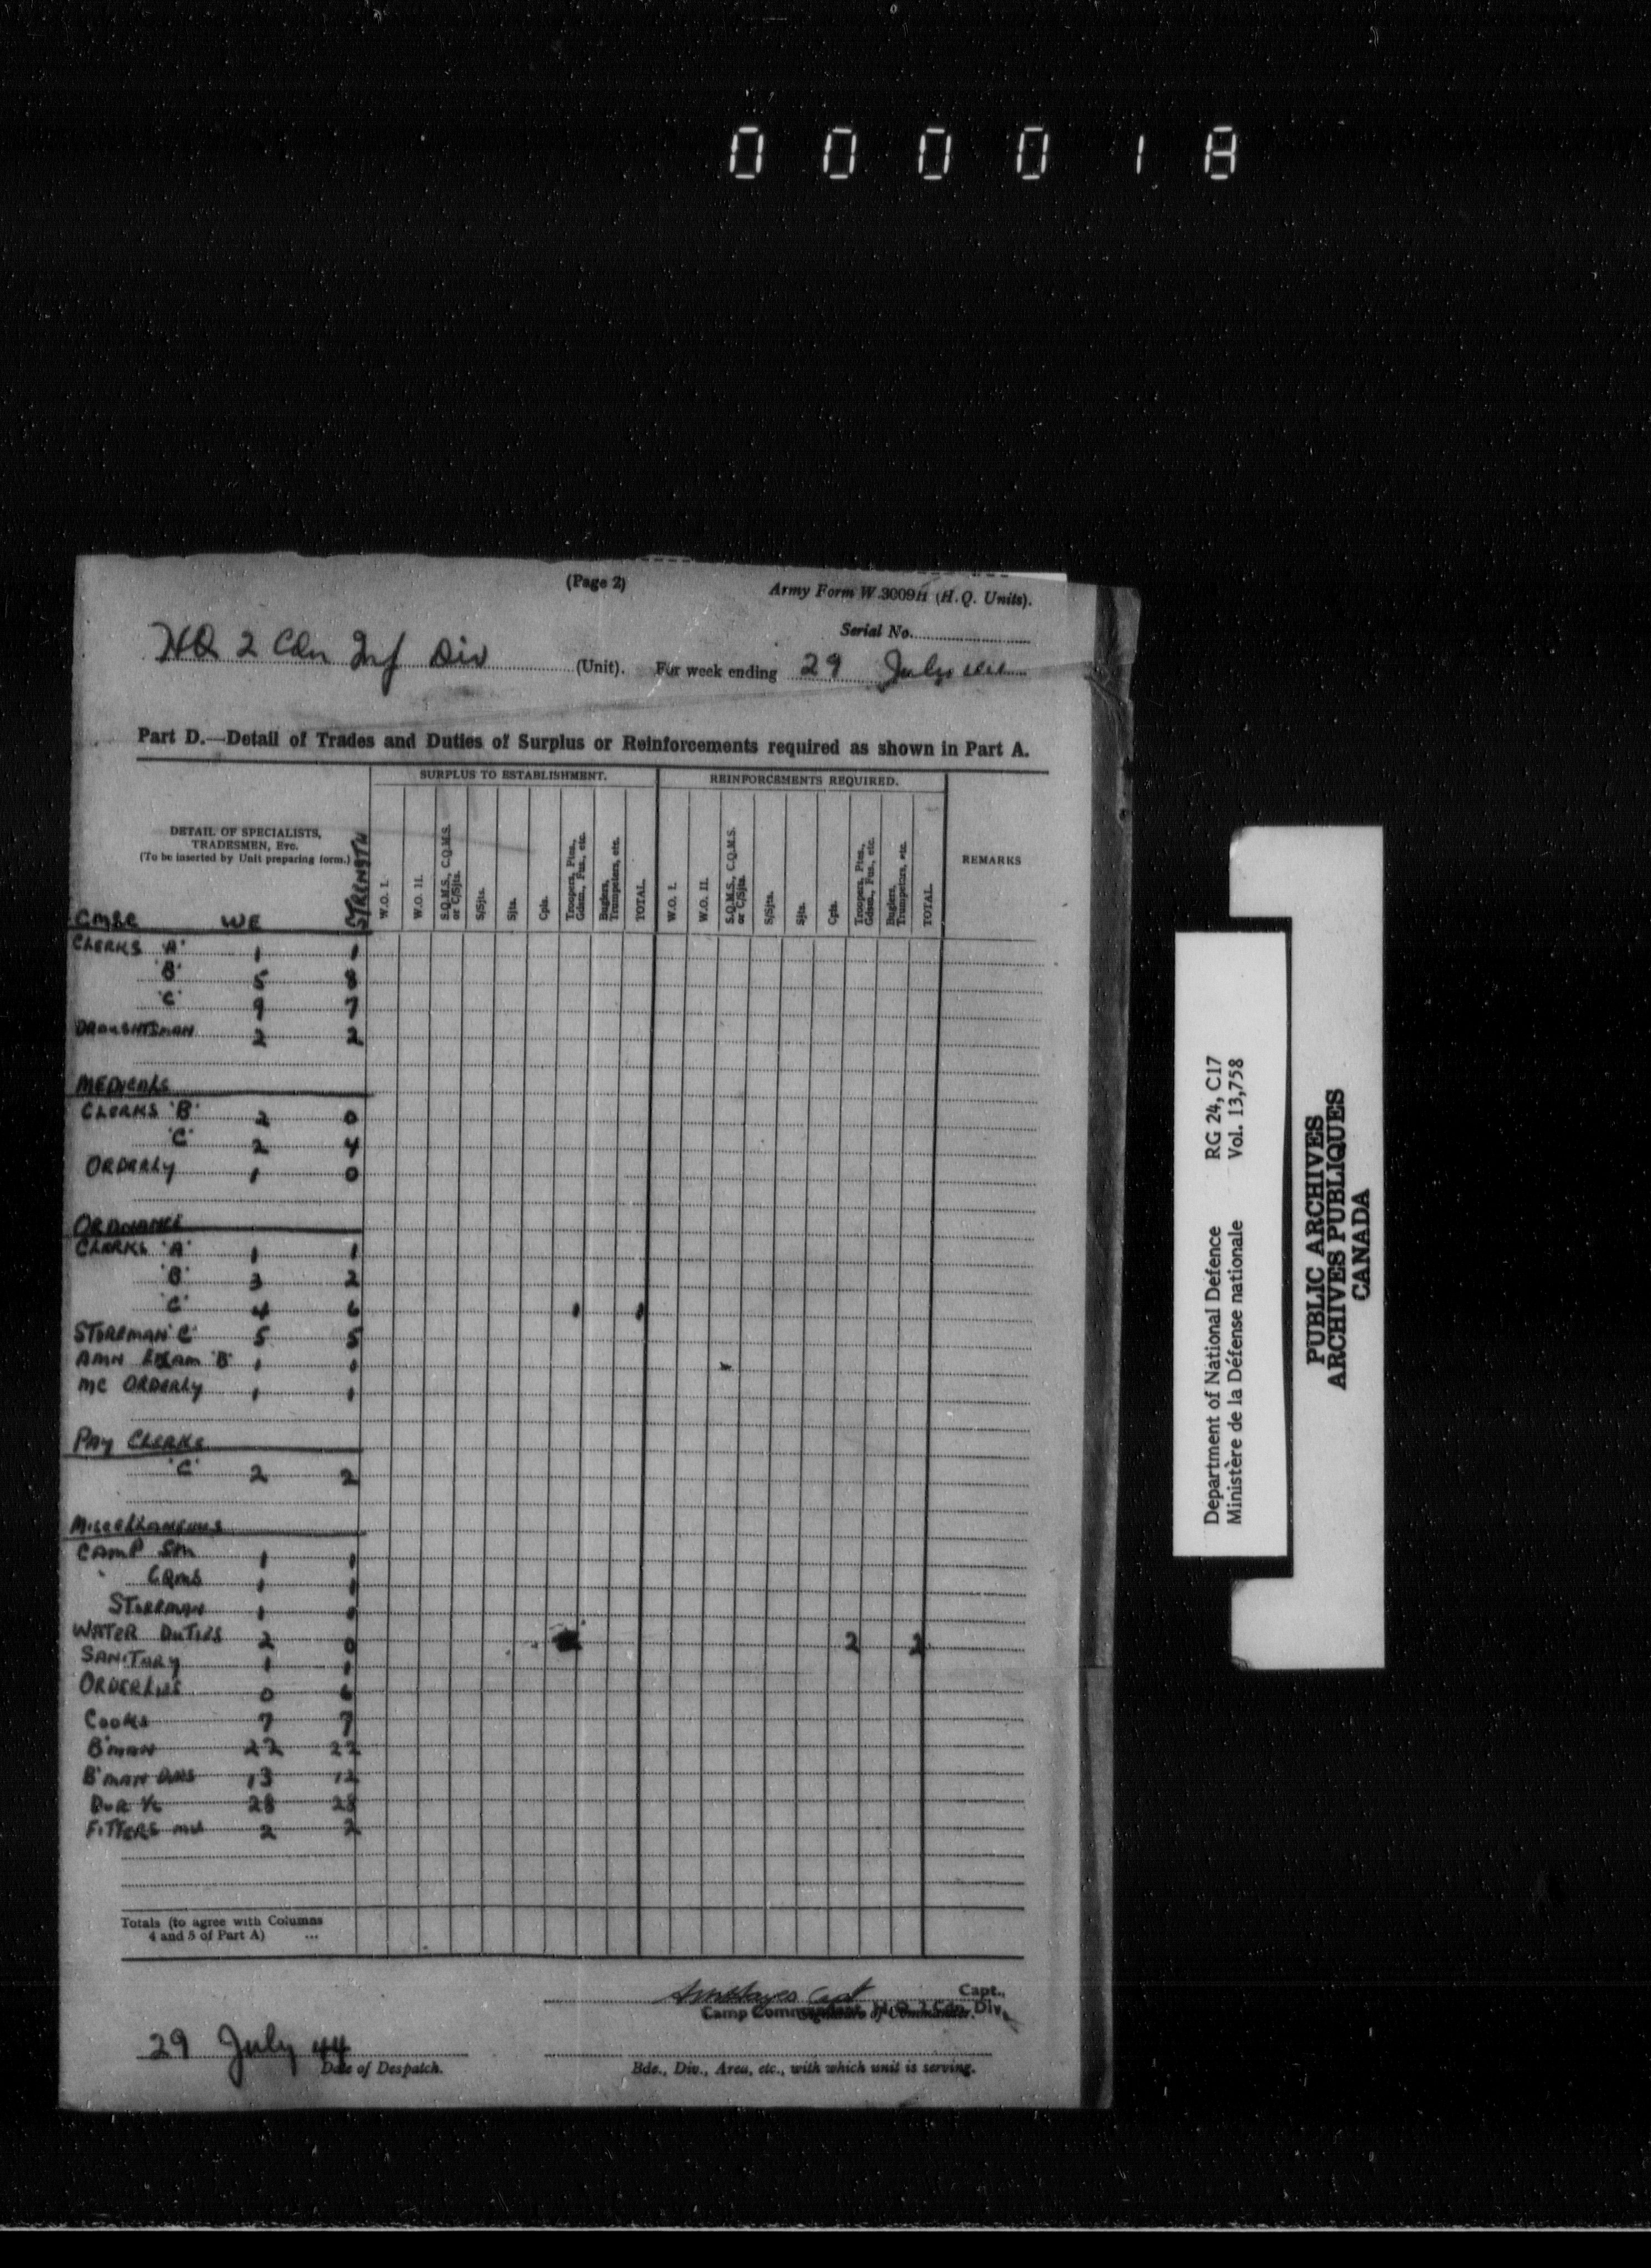 000018
(Page 2)
Army Form W.3009H (H.Q. Units).
Serial No.
HQ 2 Cdn Inf Div (Unit). For week ending 29 July
Part D.—Detail of Trades and Duties of Surplus or Reinforcements required as shown in Part A.
DETAIL OF SPECIALISTS, TRADESMEN, ETC.
(To be inserted by Unit preparing form.)
STRENGTH
SURPLUS TO ESTABLISHMENT.
REINFORCEMENTS REQUIRED.
REMARKS
W.O. I. W.O. II. S.Q.M.S., C.Q.M.S. or C/Sjts. S/Sjts. Sjts. Cpls. Troopers, Ptes., Gdsm., Fus., etc. Buglers, Trumpeters, etc. TOTAL.
W.O. I. W.O. II. S.Q.M.S., C.Q.M.S. or C/Sjts. S/Sjts. Sjts. Cpls. Troopers, Ptes., Gdsm., Fus., etc. Buglers, Trumpeters, etc. TOTAL.
CMSC WE
CLERKS 'A' 1 1
'B' 5 8
'C' 9 7
DRAUGHTSMAN 2 2
MEDICALS
CLERKS 'B' 2 0
'C' 2 4
ORDERLY 1 0
ORDNANCE
CLERKS 'A' 1 1
'B' 3 2
'C' 4 6 1 1
STOREMAN 'C' 5 5
AMN EXAM 'B' 1 1
MC ORDERLY 1 1
PAY CLERKS
'C' 2 2
MISCELLANEOUS
CAMP SM 1 1
" CQMS 1 1
STOREMAN 1 1
WATER DUTIES 2 0 2 2
SANITARY 1 1
ORDERLIES 0 6
COOKS 7 7
B'MAN 22 22
B'MAN DVRS 13 12
DVR I/C 28 28
FITTERS MV 2 2
Totals (to agree with Columns
4 and 5 of Part A) ...
Capt Capt.,
Camp Commandant, H.Q. 2 Cdn. Div.
Signature of Commander.
29 July 44
Date of Despatch.
Bde., Div., Area, etc., with which unit is serving.
Department of National Defence RG 24, C17
Ministère de la Défense nationale Vol. 13,758
PUBLIC ARCHIVES
ARCHIVES PUBLIQUES
CANADA